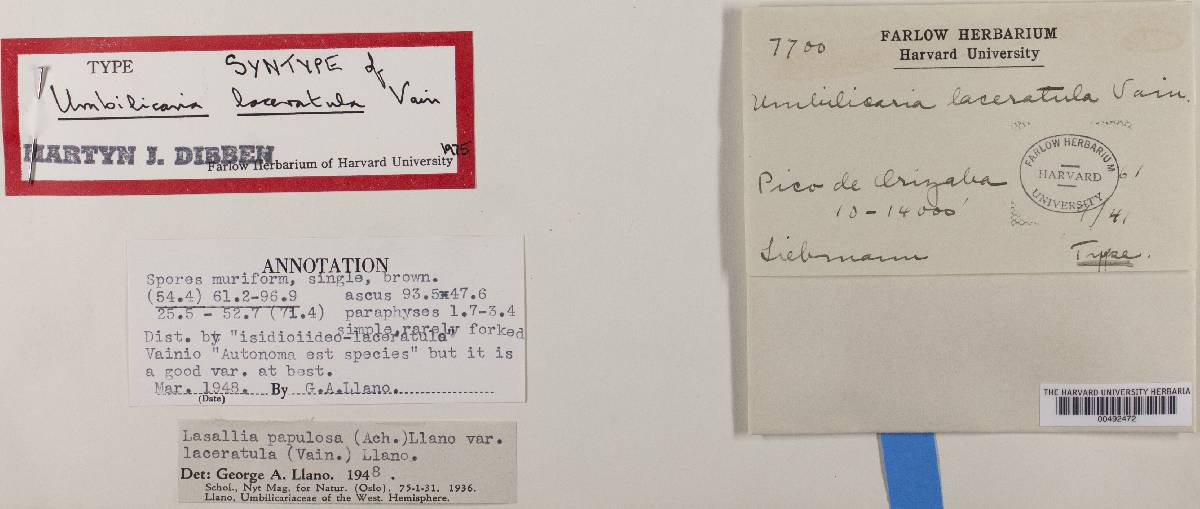 TYPE SYNTYPE of
Umbilicaria laceratula Vain
MARTYN J. DIBBEN 1975
Farlow Herbarium of Harvard University
ANNOTATION
Spores muriform, single, brown.
(54.4) 61.2-96.9 ascus 93.5x47.6
25.5 - 52.7 (71.4) paraphyses 1.7-3.4
simple,rarely forked
Dist. by "isidioiideo-laceratula"
Vainio "Autonoma est species" but it is
a good var. at best.
Mar. 1948. By G.A.Llano.
(Date)
Lasallia papulosa (Ach.)Llano var.
laceratula (Vain.) Llano.
Det: George A. Llano. 1948.
Schol., Nyt Mag. for Natur. (Oslo), 75-1-31. 1936.
Llano, Umbilicariaceae of the West. Hemisphere.
7700
FARLOW HERBARIUM
Harvard University
Umbilicaria laceratula Vain.
FARLOW HERBARIUM
HARVARD
UNIVERSITY
Pico de Orizaba
10-14000'
/41
Liebmann Type.
THE HARVARD UNIVERSITY HERBARIA
00492472